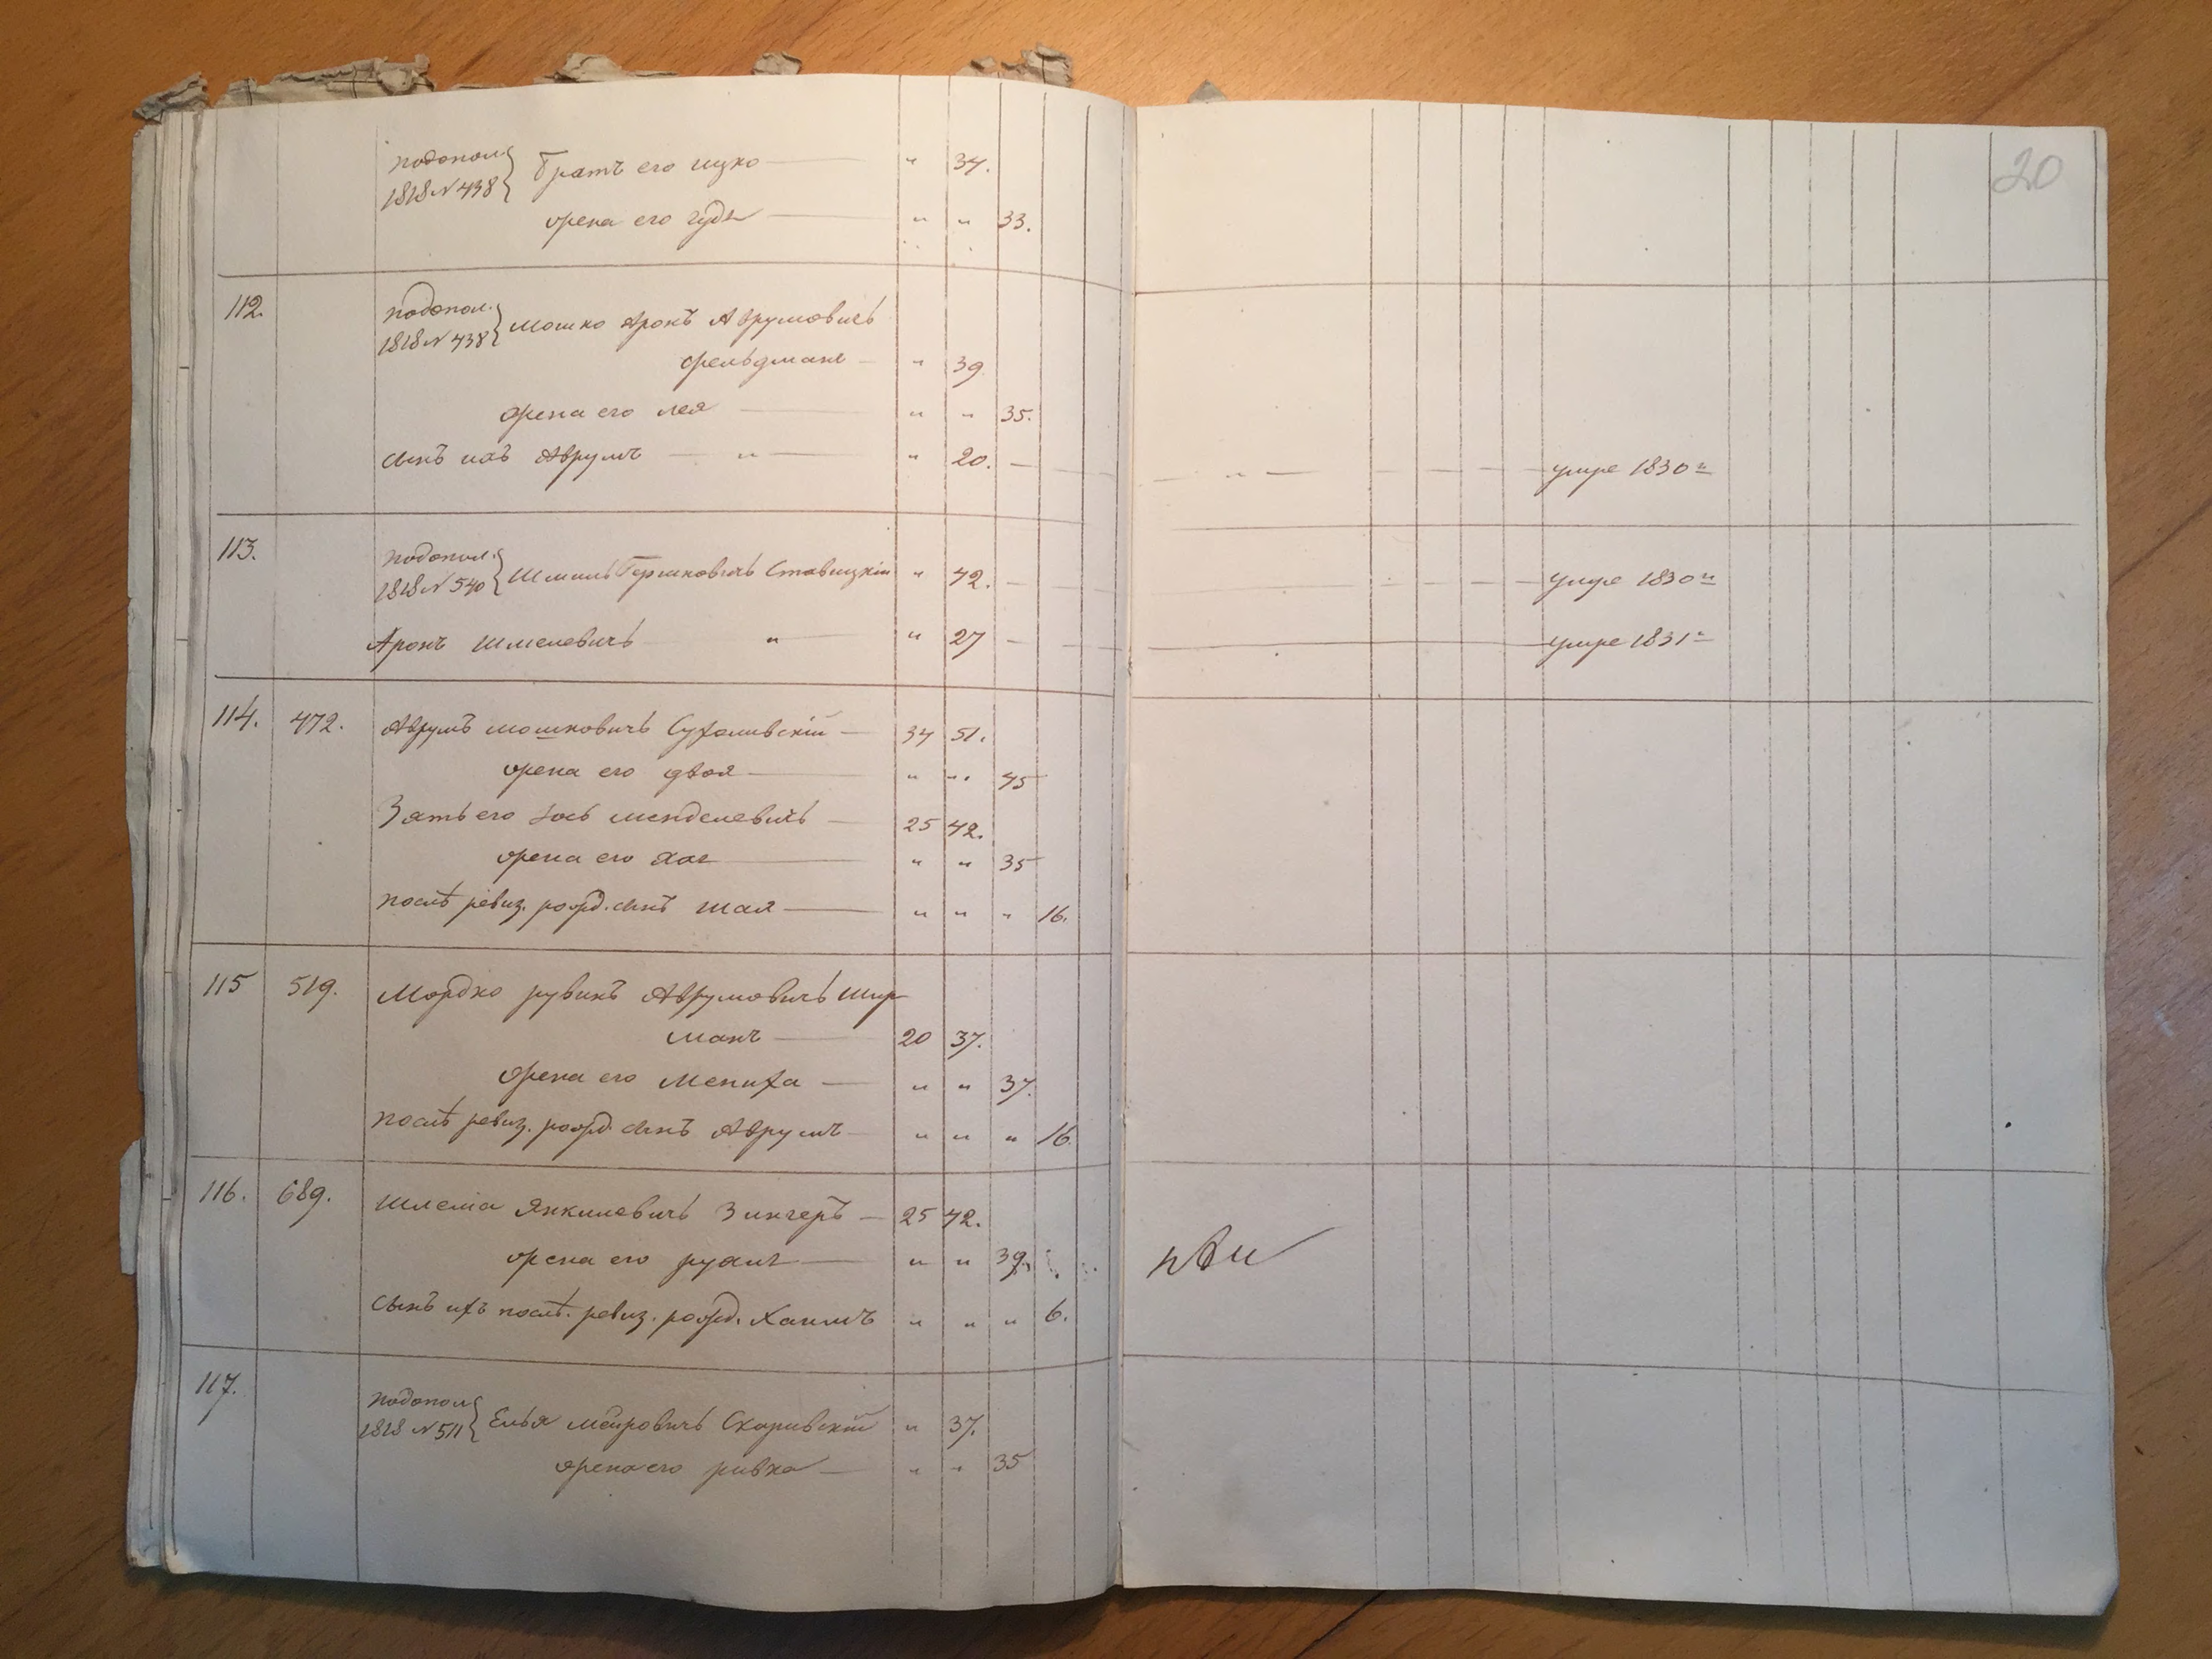 20
подопол. Братъ его ицко — „ 34.
1818 № 438
жена его гудя — „ „ 33.
112. подопол. Мошко Аронъ Аврумовичъ
1818 № 438
фельдманъ — „ 39
жена его лея — „ „ 35.
сынъ ихъ Аврумъ — „ — „ 20. — — „ — — — — умре 1830 г
113. подопол. Шмиль Гершковичъ Ставицкій „ 42. — — — — умре 1830 г
1818 № 540
Аронъ Шмелевичъ „ „ 27 — — умре 1831 г
114. 472. Аврумъ мошковичъ Сухоливскій — 34 51.
жена его двоя — „ „ 45
Зять его Іось менделевичъ — 25 42.
жена его хая — „ „ 35
послѣ ревиз. рожд. сынъ шая — „ „ „ 16.
115 519. Мордко рувинъ Аврумовичъ Шир
манъ — 20 37.
жена его Мениха — „ „ 37.
послѣ ревиз. рожд. сынъ Аврумъ — „ „ „ 16.
116. 689. Шлема Янкилевичъ Зингеръ — 25 42.
жена его рухля — „ „ 39.
сынъ ихъ послѣ. ревиз. рожд. Хаимъ „ „ „ 6.
117. подопол Елья меировичъ Скаривскій „ 37.
1818 № 511
жена его ривка — „ „ 35